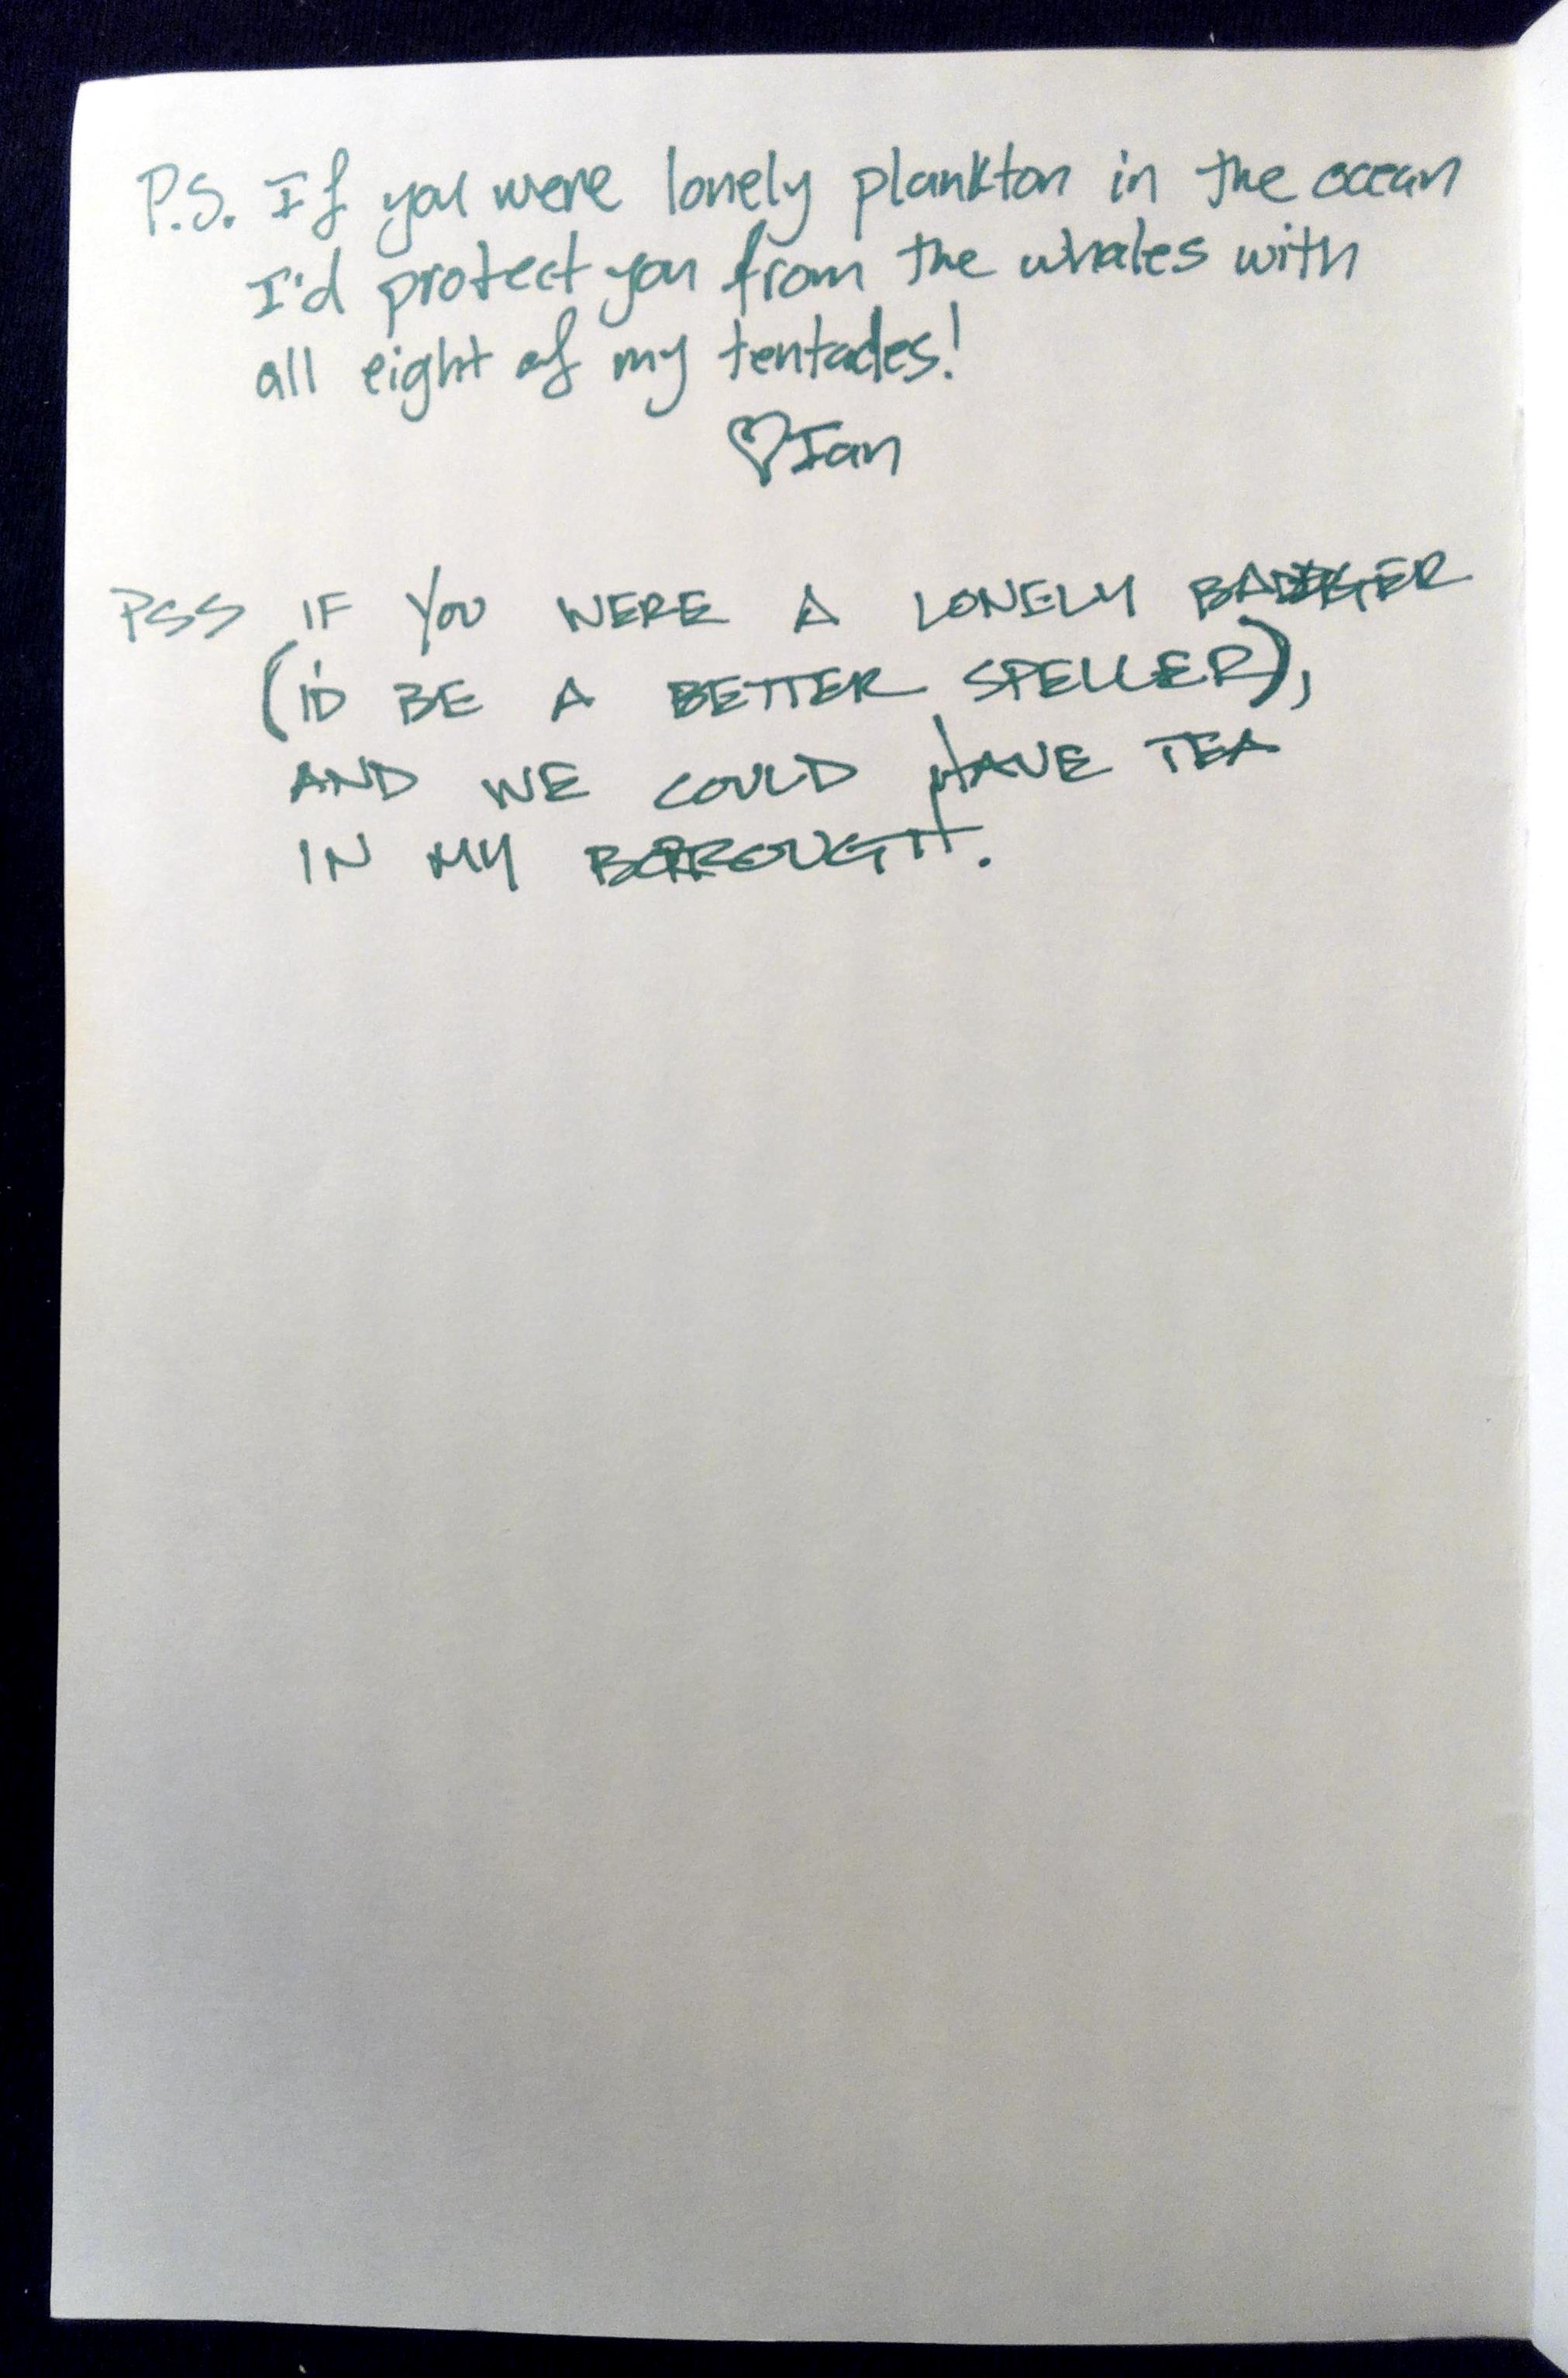 P.S. If you were lonely plankton in the ocean
I'd protect you from the whales with
all eight of my tentacles!
♡Ian
PSS IF YOU WERE A LONELY BADGER
(I'D BE A BETTER SPELLER),
AND WE COULD HAVE TEA
IN MY BORROUGH.